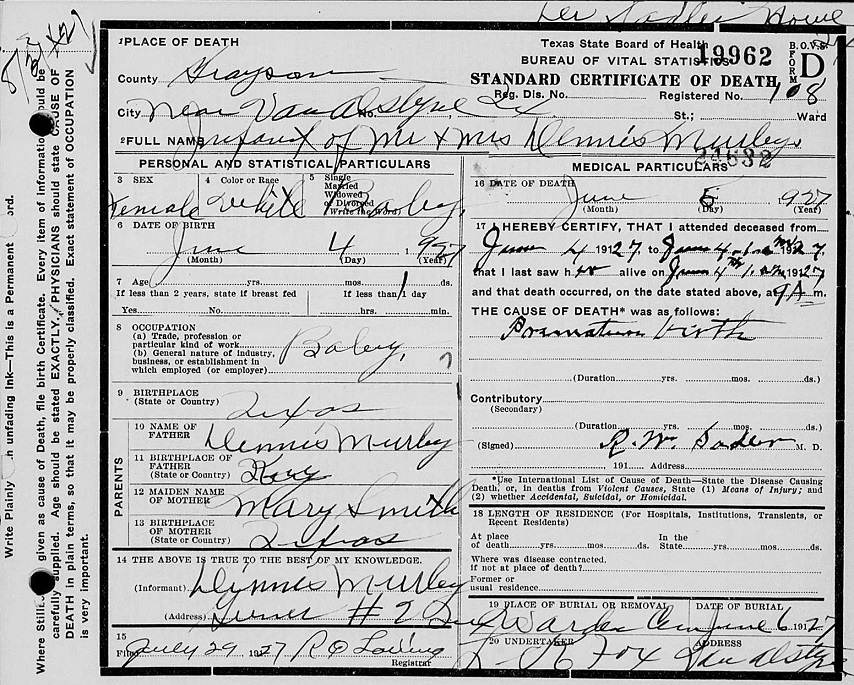 1 PLACE OF DEATH
County Grayson
City Near Van Alstyne, Tx No.
2 FULL NAME Infant of Mr & Mrs Dennis Murley
Texas State Board of Health
BUREAU OF VITAL STATISTICS
STANDARD CERTIFICATE OF DEATH
19962
B. O. V. S.
FORM
D
Reg. Dis. No. Registered No. 108
St.; Ward
PERSONAL AND STATISTICAL PARTICULARS
3 SEX
Female
4 Color or Race
White
5 Single
Married
Widowed
or Divorced
(Write the Word)
Baby
6 DATE OF BIRTH
June 4 1927
(Month) (Day) (Year)
7 Age yrs. mos. 1 ds.
If less than 2 years, state if breast fed
Yes No.
If less than 1 day
hrs. min.
8 OCCUPATION
(a) Trade, profession or
particular kind of work
(b) General nature of industry,
business, or establishment in
which employed (or employer)
Baby,
9 BIRTHPLACE
(State or Country)
Texas
PARENTS
10 NAME OF
FATHER
Dennis Murley
11 BIRTHPLACE OF
FATHER
(State or Country)
12 MAIDEN NAME
OF MOTHER
Mary Smith
13 BIRTHPLACE
OF MOTHER
(State or Country)
Texas
14 THE ABOVE IS TRUE TO THE BEST OF MY KNOWLEDGE.
(Informant) Dennis Murley
(Address) # 2
15
Filed July 29 1927
Registrar
MEDICAL PARTICULARS
16 DATE OF DEATH
June 5 1927
(Month) (Day) (Year)
17 I HEREBY CERTIFY, That I attended deceased from
June 4 1927, to June 4 1927,
that I last saw h alive on June 4 1927
and that death occurred, on the date stated above, at 9 A m.
THE CAUSE OF DEATH* was as follows:
Premature birth
(Duration yrs. mos. ds.)
Contributory
(Secondary)
(Duration yrs. mos. ds.)
(Signed) M. D.
191 Address
*Use International List of Cause of Death—State the Disease Causing
Death, or, in deaths from Violent Causes, State (1) Means of Injury; and
(2) whether Accidental, Suicidal, or Homicidal.
18 LENGTH OF RESIDENCE (For Hospitals, Institutions, Transients, or
Recent Residents)
At place
of death yrs. mos. ds.
In the
State yrs. mos. ds.
Where was disease contracted,
if not at place of death?
Former or
usual residence
19 PLACE OF BURIAL OR REMOVAL
DATE OF BURIAL
Cem June 6 1927
20 UNDERTAKER
Fox
ADDRESS
Van Alstyne
Write Plainly unfading Ink—This is a Permanent
given as cause of Death, file birth Certificate. Every item of information should be
carefully supplied. Age should be stated EXACTLY. PHYSICIANS should state CAUSE OF
DEATH in plain terms, so that it may be properly classified. Exact statement of OCCUPATION
is very important.